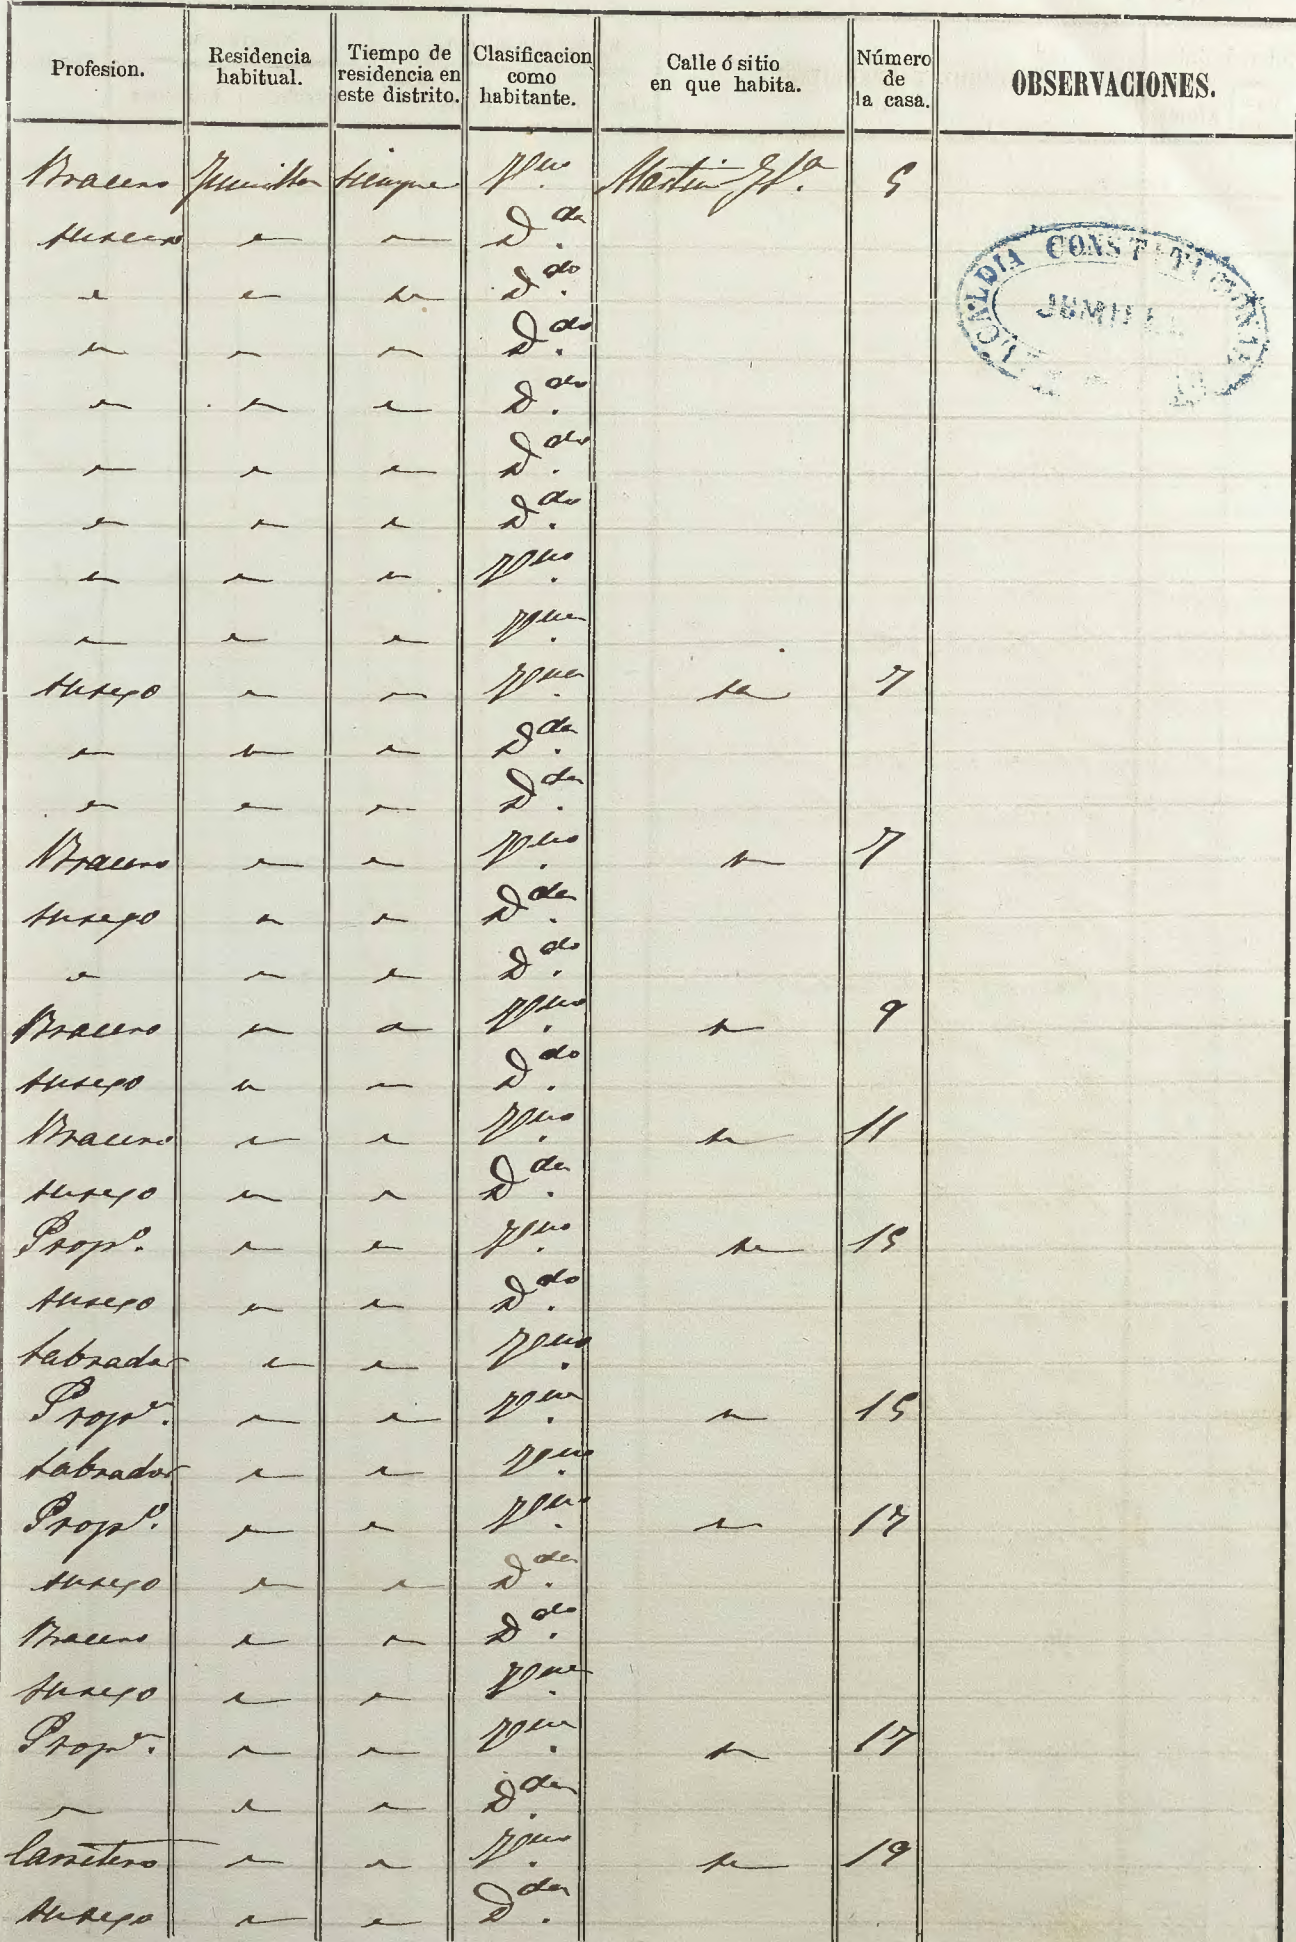 Profesion. Residencia habitual. Tiempo de residencia en este distrito. Clasificacion como habitante. Calle ó sitio en que habita. Número de la casa. OBSERVACIONES.
ALCALDIA CONSTITUCIONAL JUMILLA
Bracero Jumilla siempre Vno. Martin 5
su sexo " " Dda.
" " " Ddo.
" " " Ddo.
" " " Ddo.
" " " Ddo.
" " " Ddo.
" " " Vno.
" " " Vna.
su sexo " " Vna. " 7
" " " Dda.
" " " Dda.
Bracero " " Vno. " 7
su sexo " " Dda.
" " " Ddo.
Bracero " " Vno. " 9
su sexo " " Ddo.
Bracero " " Vno. " 11
su sexo " " Dda.
Propº. " " Vno. " 15
su sexo " " Ddo.
Labrador " " Vno.
Propª. " " Vna. " 15
Labrador " " Vno.
Propº. " " Vno. " 17
su sexo " " Dda.
Bracero " " Ddo.
su sexo " " Vna.
Propª. " " Vna. " 17
" " " Dda.
Carretero " " Vno. " 19
su sexo " " Dda.